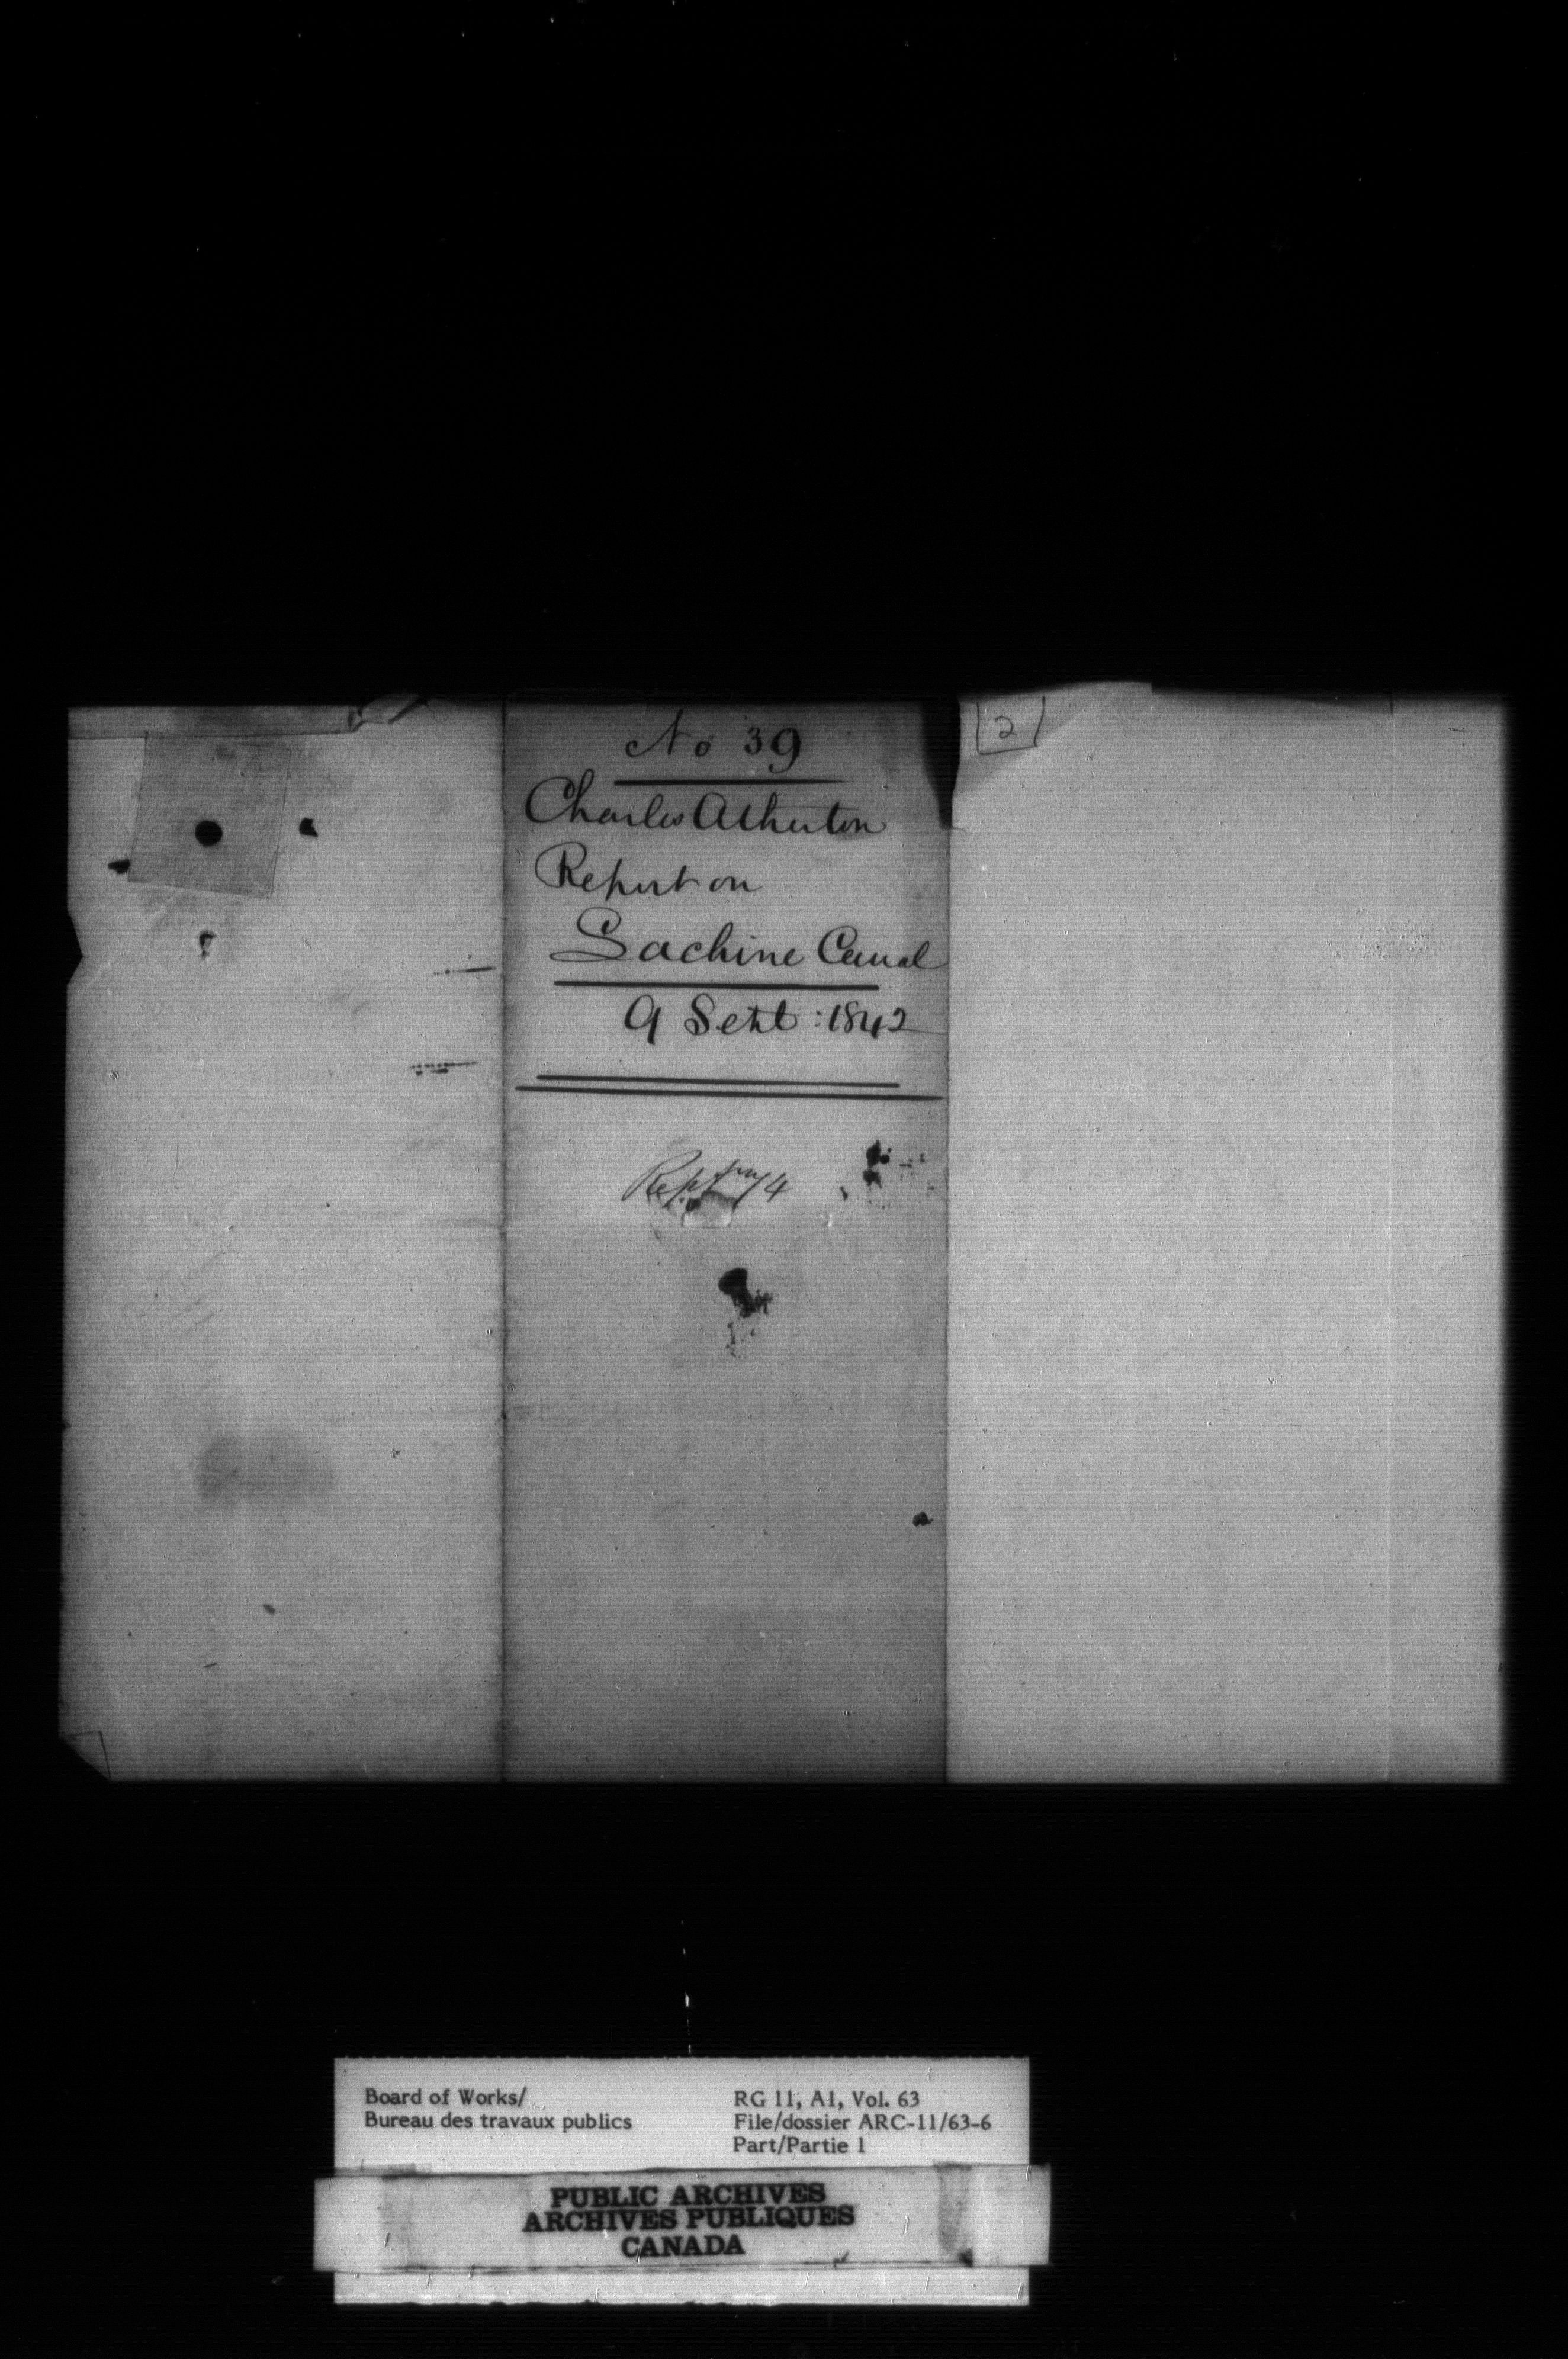 No 39
Charles Atherton
Report on
Lachine Canal
9 Sept : 1842
2
Board of Works/
Bureau des travaux publics
RG 11, A1, Vol. 63
File/dossier ARC-11/63-6
Part/Partie 1
PUBLIC ARCHIVES
ARCHIVES PUBLIQUES
CANADA